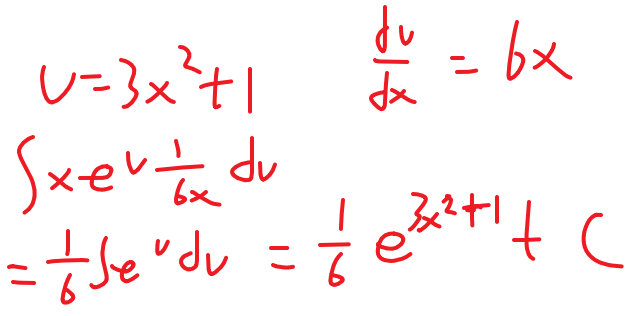 u = 3x² + 1    du/dx = 6x
∫ x e^u 1/(6x) du
= 1/6 ∫ e^u du = 1/6 e^(3x²+1) + C